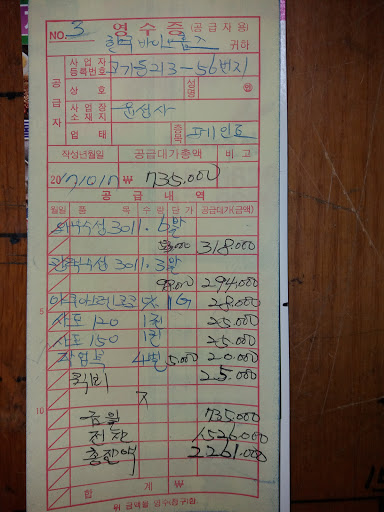 NO. 3 영 수 증 (공급자용)
귀하
공급자
사업자등록번호 고기동213-56번지
상호 성명 ㊞
사업장소재지 윤성사
업태 종목 페인트
작성년월일 공급대가총액 비고
2017.10.17 ₩ 735.000
공 급 내 역
월일 품 목 수량 단가 공급대가(금액)
수성 3011. 6말
318.000
수성 3011. 3말
98.000 294.000
1G 28.000
5 사포 120 1권 25.000
사포 150 1권 25.000
작업복 4벌 5.000 20.000
25.000
10 금일 735.000
전잔 1526.000
총잔액 2261.000
합 계 ₩
위 금액을 영수(청구)함.